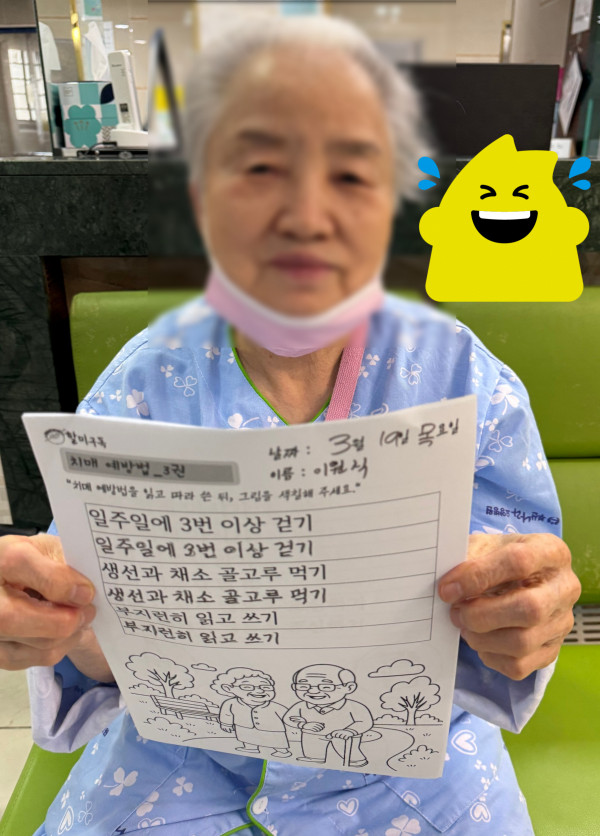 할미구독
날짜 : 3월 19일 목요일
치매 예방법_3권
이름 : 이원식
"치매 예방법을 읽고 따라 쓴 뒤, 그림을 색칠해 주세요."
일주일에 3번 이상 걷기
일주일에 3번 이상 걷기
생선과 채소 골고루 먹기
생선과 채소 골고루 먹기
부지런히 읽고 쓰기
부지런히 읽고 쓰기